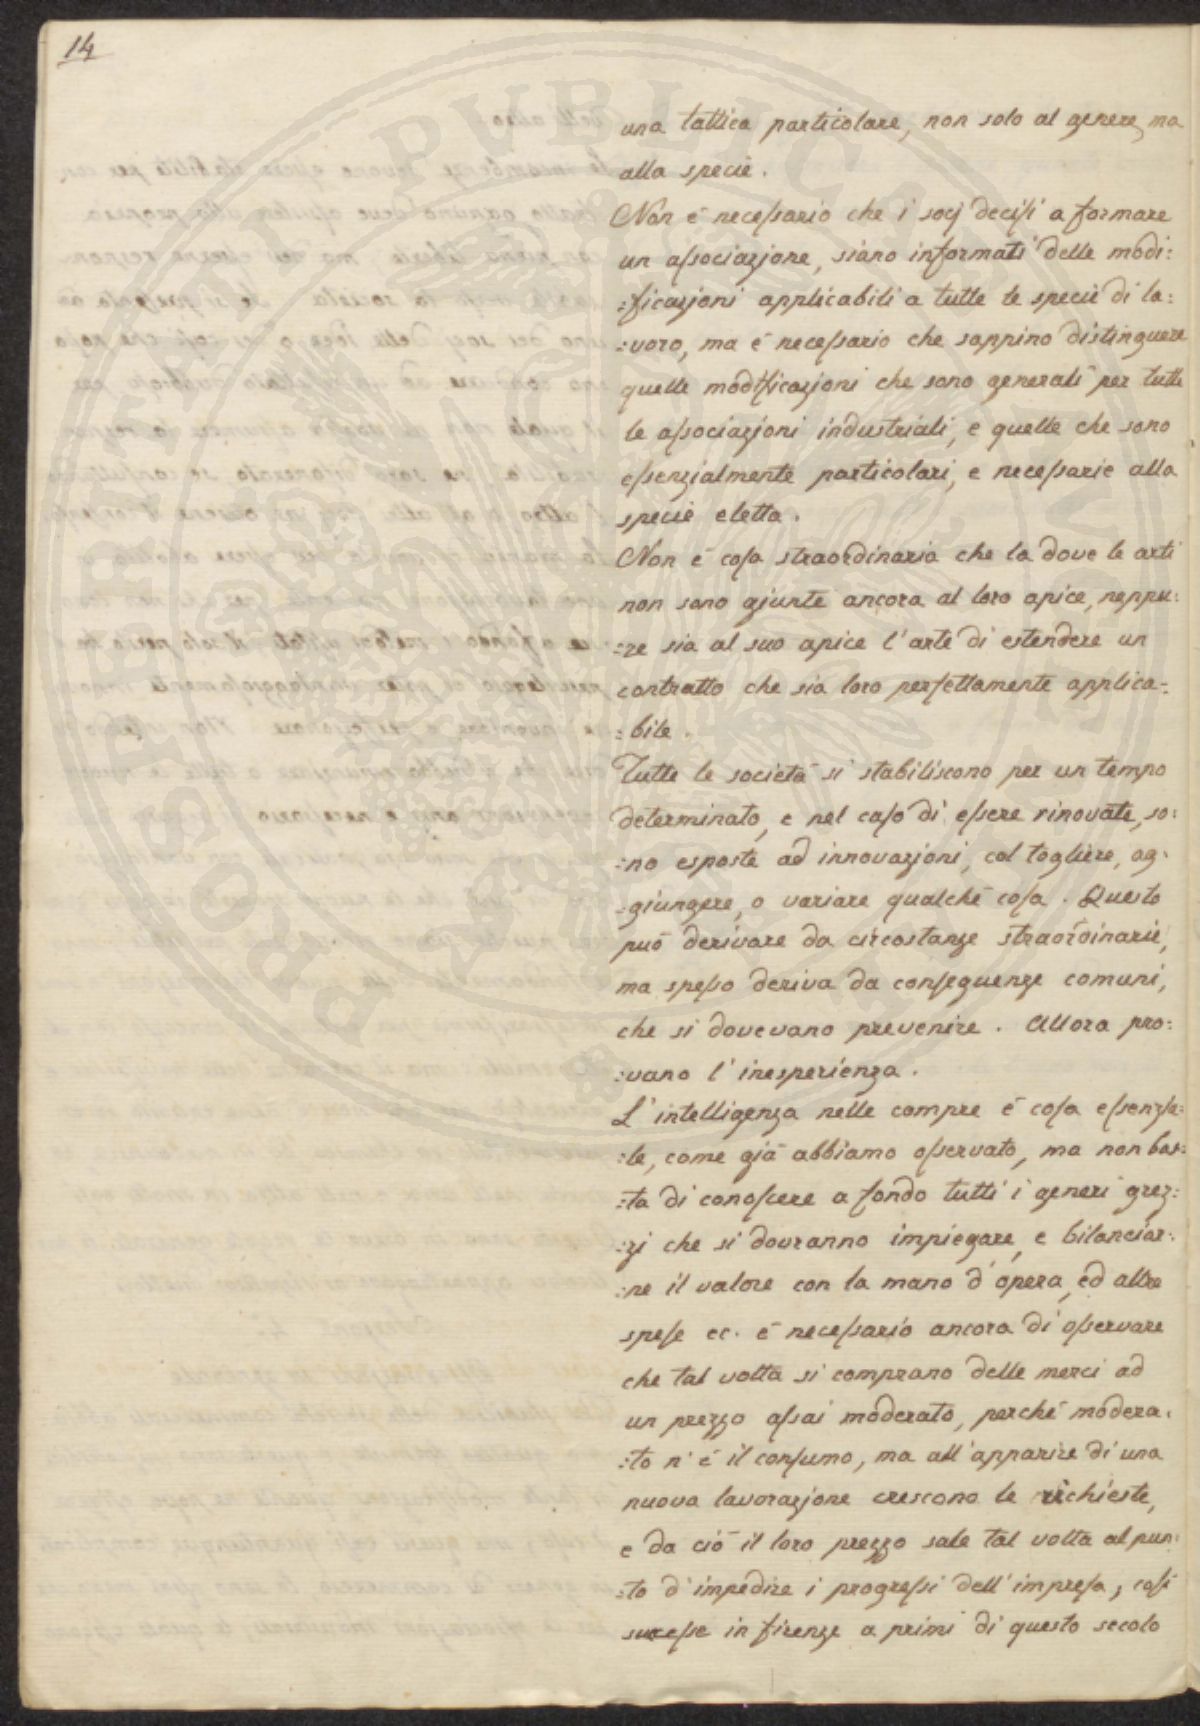 14
una tattica particolare, non solo al genere, ma
alla specie.
Non è necessario che i socj decisi a formare
un associazione, siano informati delle modi:
:ficazioni applicabili a tutte le specie di la:
:voro, ma è necessario che sappino distinguere
quelle modificazioni che sono generali per tutte
le associazioni industriali, e quelle che sono
essenzialmente particolari, e necessarie alla
specie eletta.
Non è cosa straordinaria che la dove le arti
non sono giunte ancora al loro apice, neppu:
:re sia al suo apice l'arte di estendere un
contratto che sia loro perfettamente applica-:
:bile.
Tutte le società si stabiliscono per un tempo
determinato, e nel caso di essere rinovate, so:
:no esposte ad innovazioni, col togliere, ag:
:giungere, o variare qualche cosa. Questo
può derivare da circostanze straordinarie,
ma spesso deriva da conseguenze comuni,
che si dovevano prevenire. Allora pro:
:vano l'inesperienza.
L'intelligenza nelle compre è cosa essenzia:
:le, come già abbiamo osservato, ma non bas:
:ta di conoscere a fondo tutti i generi grez:
:zi che si dovranno impiegare, e bilanciar:
:ne il valore con la mano d'opera, ed altre
spese ec. è necessario ancora di osservare
che tal volta si comprano delle merci ad
un prezzo assai moderato, perchè modera:
:to n'è il consumo, ma all'apparire di una
nuova lavorazione crescono le richieste,
e da ciò il loro prezzo sale tal volta al pun:
:to d'impedire i progressi dell'impresa, così
successe in firenze a primi di questo secolo
PROSPERITATI PUBLICAE AUGENDAE